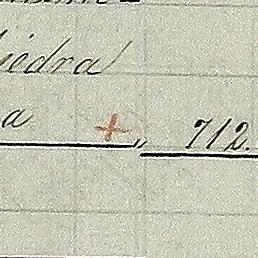 iedra
a + " 712.